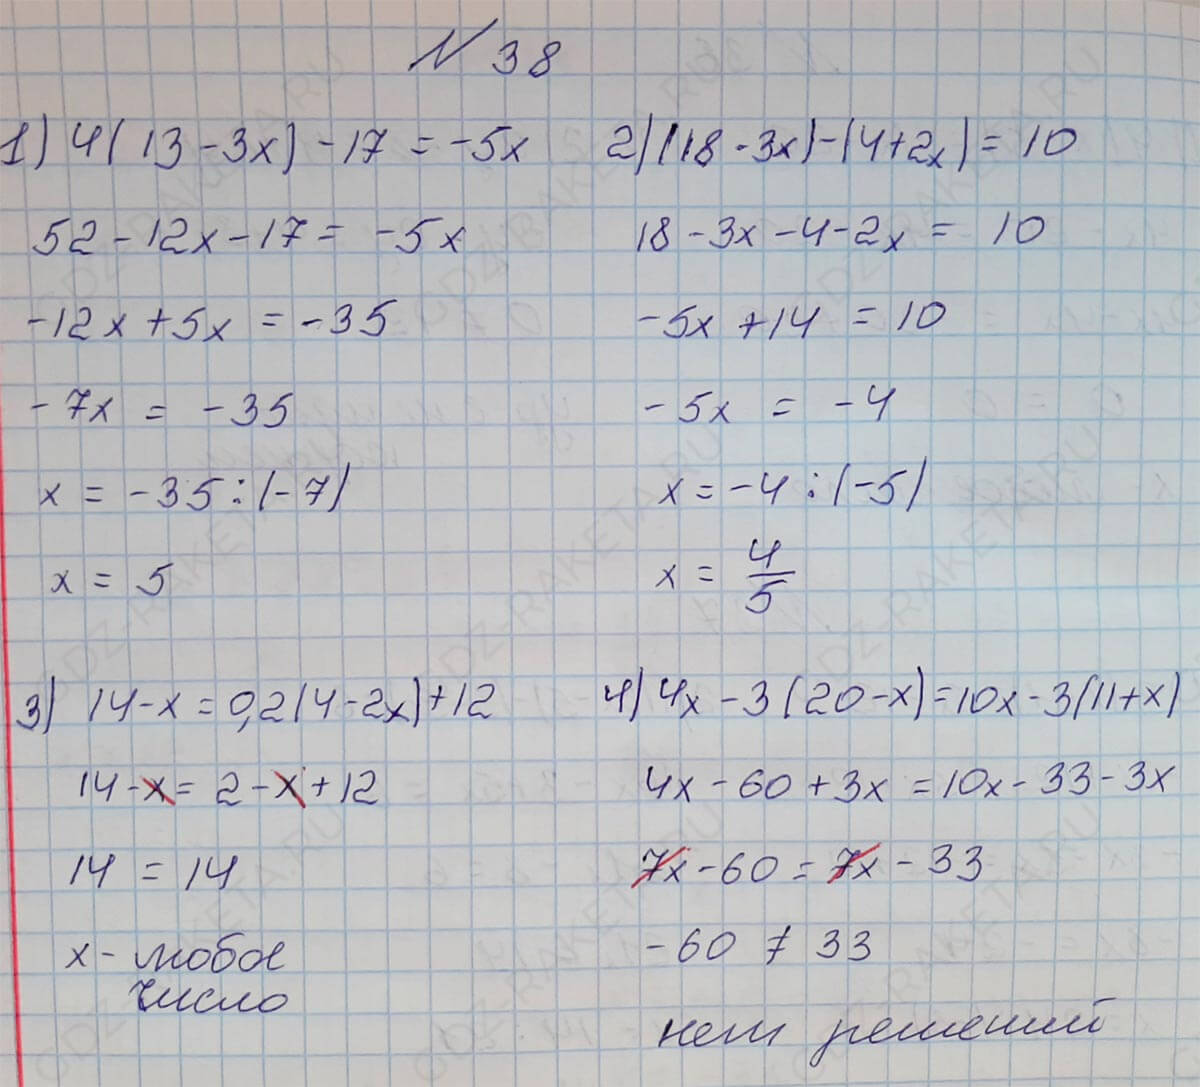 № 38
1) 4(13 - 3x) - 17 = -5x
52 - 12x - 17 = -5x
-12x + 5x = -35
-7x = -35
x = -35 : (-7)
x = 5
2) (18 - 3x) - (4 + 2x) = 10
18 - 3x - 4 - 2x = 10
-5x + 14 = 10
-5x = -4
x = -4 : (-5)
x = 4/5
3) 14 - x = 0,2(4 - 2x) + 12
14 - x = 2 - x + 12
14 = 14
x - любое
число
4) 4x - 3(20 - x) = 10x - 3(11 + x)
4x - 60 + 3x = 10x - 33 - 3x
7x - 60 = 7x - 33
-60 ≠ 33
нет решений
GDZ-RAKETA.RU